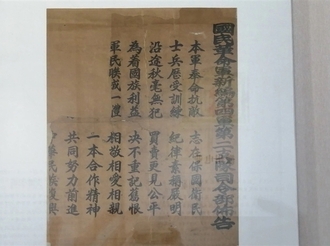 國民革命軍新編第四軍第二支隊司令部佈告
本軍奉命抗敵 志在保國衛民
士兵歷受訓練 紀律素稱嚴明
沿途秋毫無犯 買賣更見公平
為着國族利益 決不重記舊恨
軍民成一體 相敬相愛相親
一本合作精神
共同努力前進
華民族復興